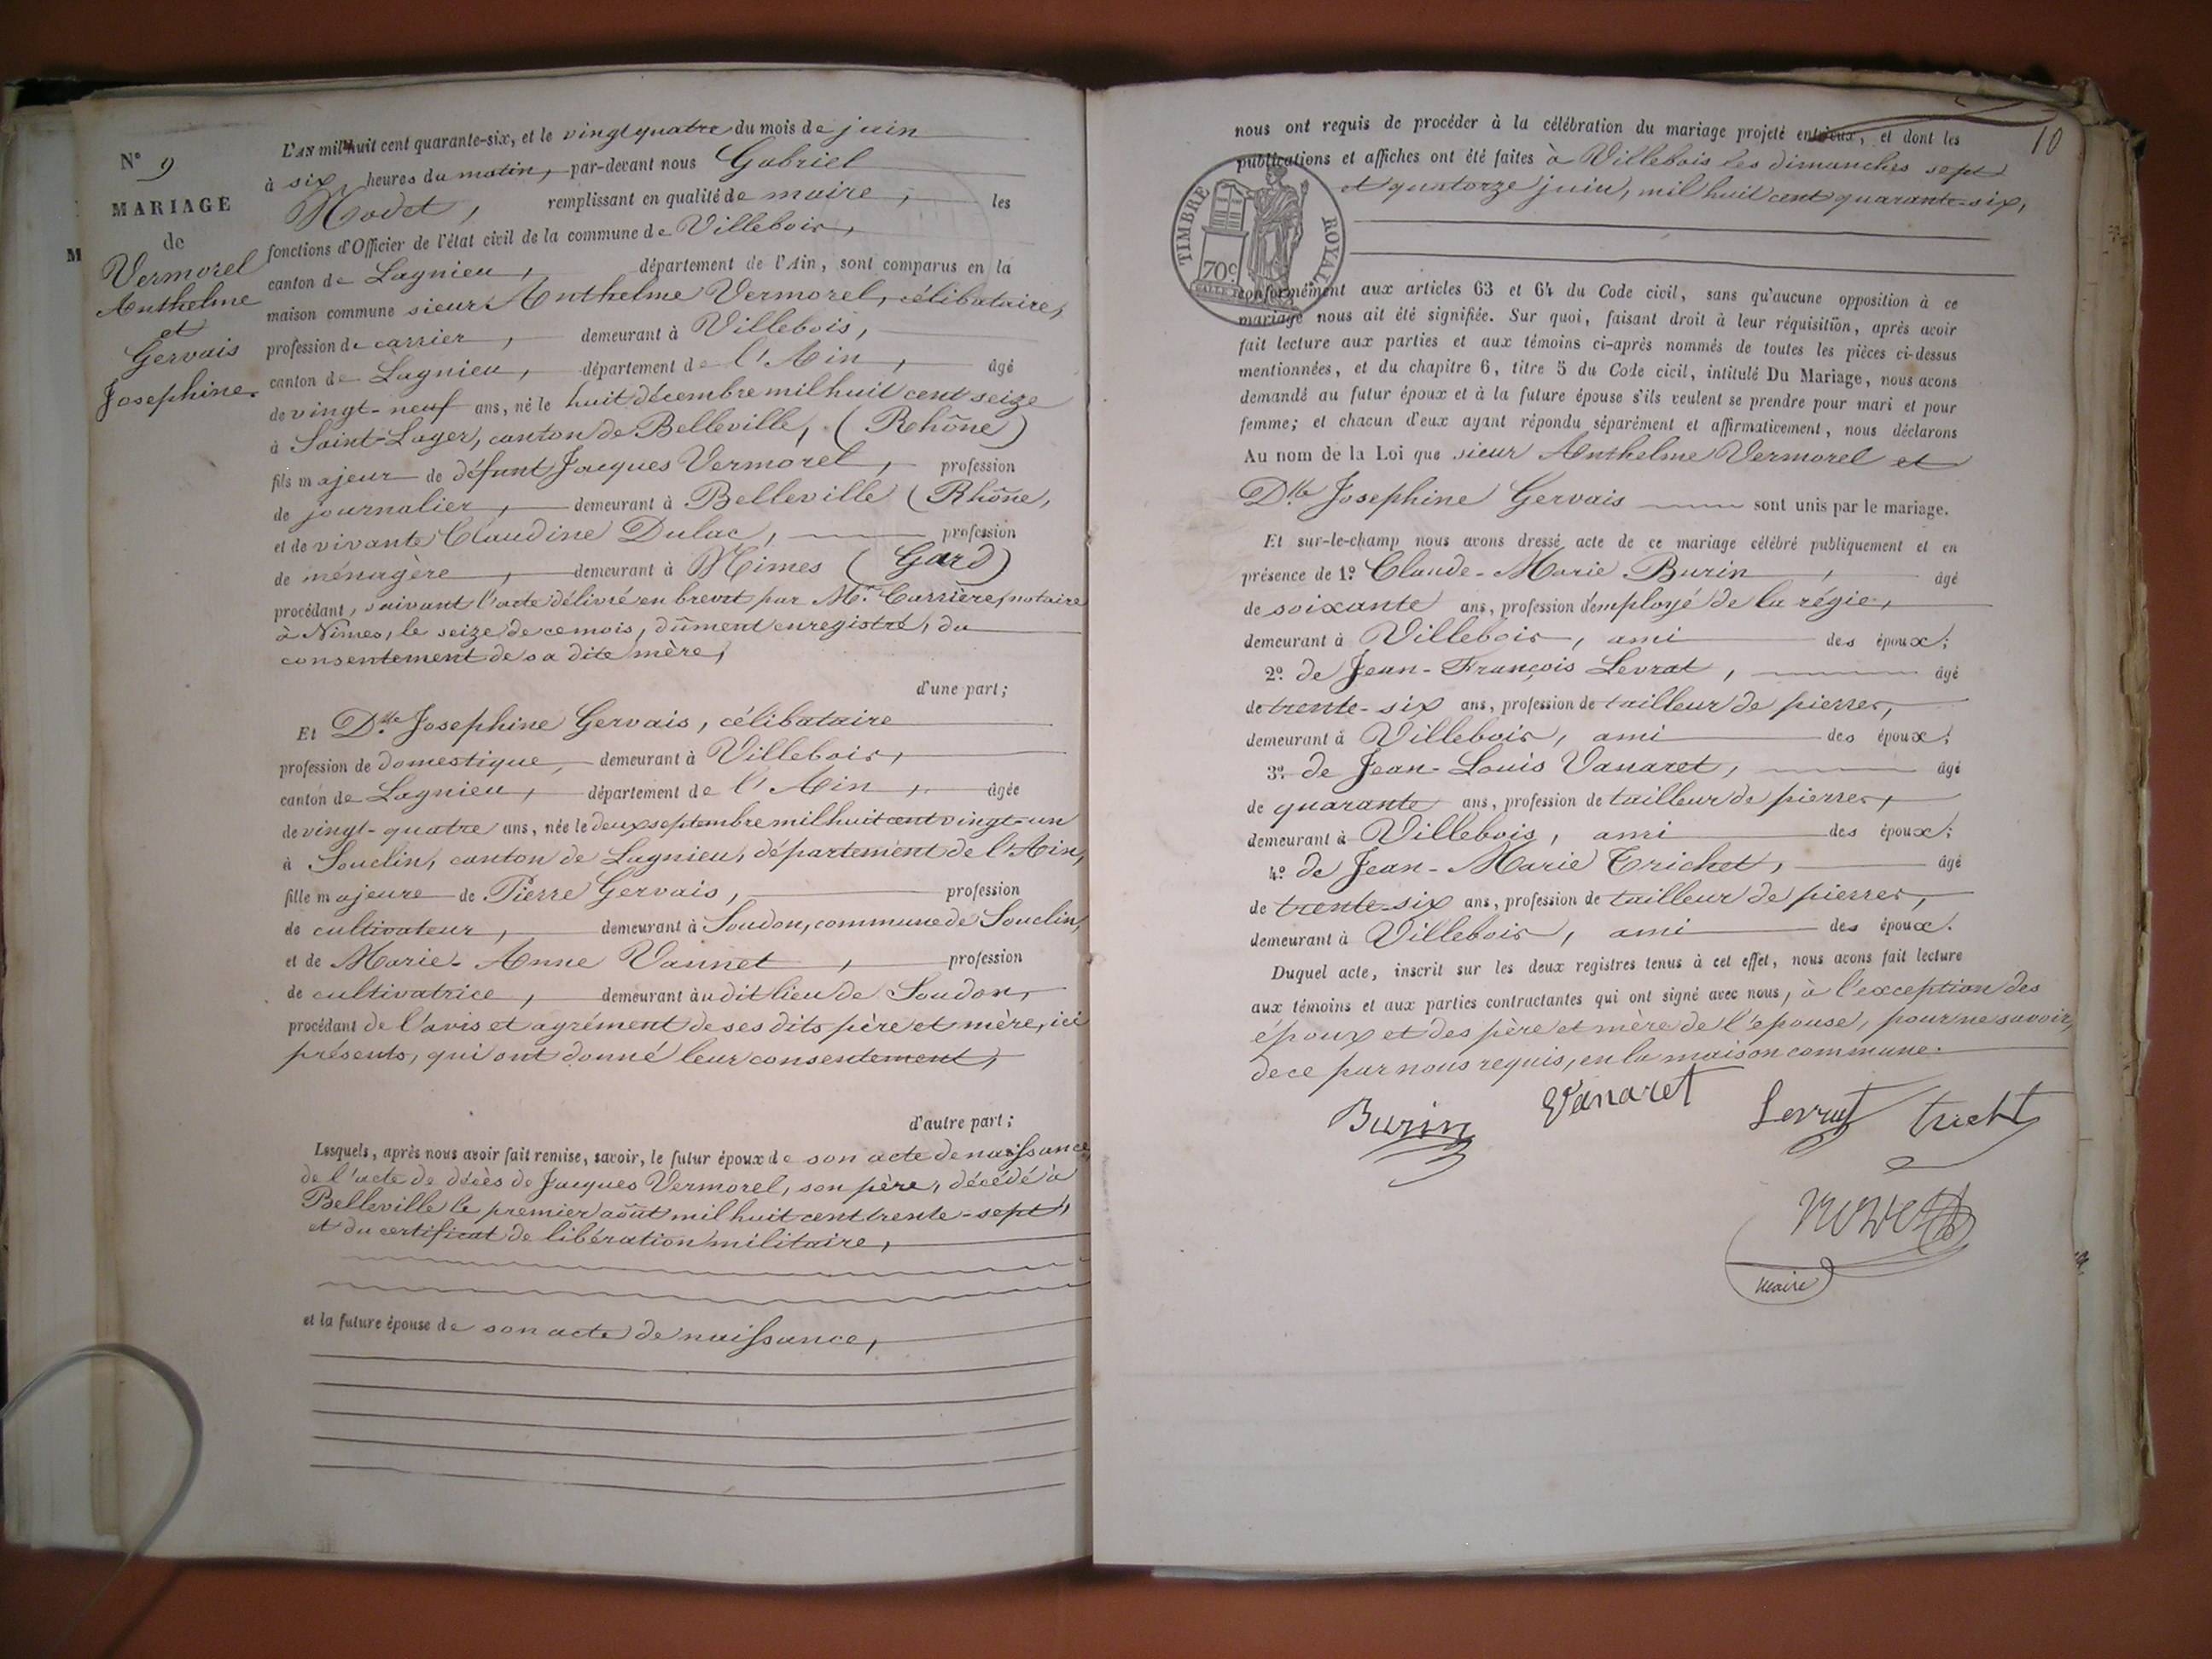 N° 9
MARIAGE
de
Vermorel
Anthelme
et
Gervais
Josephine.
M
L'AN mil huit cent quarante-six, et le vingt quatre du mois de juin
à six heures du matin, par-devant nous Gabriel
Nodet, remplissant en qualité de maire, les
fonctions d'Officier de l'état civil de la commune de Villebois,
canton de Lagnieu, département de l'Ain, sont comparus en la
maison commune sieur Anthelme Vermorel, célibataire,
profession de carrier, demeurant à Villebois,
canton de Lagnieu, département de l'Ain, âgé
de vingt-neuf ans, né le huit décembre mil huit cent seize
à Saint-Lager, canton de Belleville, (Rhône)
fils majeur de défunt Jacques Vermorel, profession
de journalier, demeurant à Belleville (Rhône,
et de vivante Claudine Dulac, profession
de ménagère, demeurant à Nimes (Gard)
procédant, suivant l'acte délivré en brevet par Mr. Carrière, notaire
à Nimes, le seize de ce mois, dûment enregistré, du
consentement de sa dite mère,
d'une part;
Et Dlle Josephine Gervais, célibataire
profession de domestique, demeurant à Villebois,
canton de Lagnieu, département de l'Ain, âgée
de vingt-quatre ans, née le deux septembre mil huit cent vingt-un
à Souclin, canton de Lagnieu, département de l'Ain,
fille majeure de Pierre Gervais, profession
de cultivateur, demeurant à Soudon, commune de Souclin,
et de Marie-Anne Vannet, profession
de cultivatrice, demeurant audit lieu de Soudon,
procédant de l'avis et agrément de ses dits père et mère, ici
présents, qui ont donné leur consentement,
d'autre part;
Lesquels, après nous avoir fait remise, savoir, le futur époux de son acte de naissance,
de l'acte de décès de Jacques Vermorel, son père, décédé à
Belleville le premier août mil huit cent trente-sept,
et du certificat de libération militaire,
et la future épouse de son acte de naissance,
10
nous ont requis de procéder à la célébration du mariage projeté entr'eux, et dont les
publications et affiches ont été faites à Villebois les dimanches sept
et quatorze juin, mil huit cent quarante-six,
TIMBRE ROYAL
70c
conformément aux articles 63 et 64 du Code civil, sans qu'aucune opposition à ce
mariage nous ait été signifiée. Sur quoi, faisant droit à leur réquisition, après avoir
fait lecture aux parties et aux témoins ci-après nommés de toutes les pièces ci-dessus
mentionnées, et du chapitre 6, titre 5 du Code civil, intitulé Du Mariage, nous avons
demandé au futur époux et à la future épouse s'ils veulent se prendre pour mari et pour
femme; et chacun d'eux ayant répondu séparément et affirmativement, nous déclarons
Au nom de la Loi que sieur Anthelme Vermorel et
Dlle Josephine Gervais sont unis par le mariage.
Et sur-le-champ nous avons dressé acte de ce mariage célébré publiquement et en
présence de 1° Claude-Marie Burin, âgé
de soixante ans, profession d'employé de la régie,
demeurant à Villebois, ami des époux;
2° de Jean-François Levrat, âgé
de trente-six ans, profession de tailleur de pierres,
demeurant à Villebois, ami des époux;
3° de Jean-Louis Vanaret, âgé
de quarante ans, profession de tailleur de pierres,
demeurant à Villebois, ami des époux;
4° de Jean-Marie Trichet, âgé
de trente-six ans, profession de tailleur de pierres,
demeurant à Villebois, ami des époux.
Duquel acte, inscrit sur les deux registres tenus à cet effet, nous avons fait lecture
aux témoins et aux parties contractantes qui ont signé avec nous, à l'exception des
époux et des père et mère de l'epouse, pour ne savoir,
de ce par nous requis, en la maison commune.
Burin Vanaret Levrat tricht
Nodet
maire